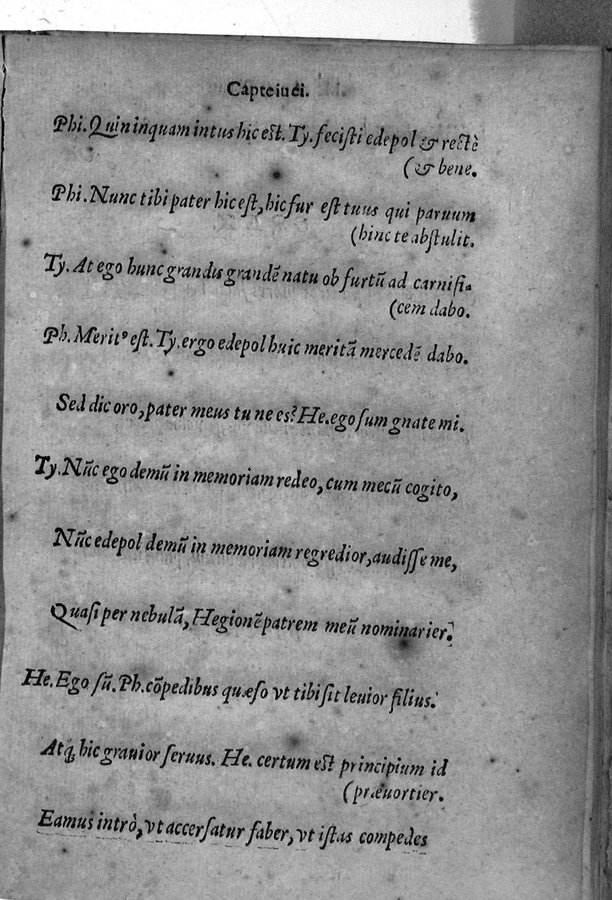 Capteiuei.
Phi. Quin inquam intus hic est. Ty. fecisti edepol & rectè
(& bene.
Phi. Nunc tibi pater hic est, hic fur est tuus qui paruum
(hinc te abstulit.
Ty. At ego hunc grandis grandē natu ob furtū ad carnifi-
(cem dabo.
Ph. Meritꝰ est. Ty. ergo edepol huic meritā mercedē dabo.
Sed dic oro, pater meus tu ne es? He. ego sum gnate mi.
Ty. Nūc ego demū in memoriam redeo, cum mecū cogito,
Nūc edepol demū in memoriam regredior, audisse me,
Quasi per nebulā, Hegionē patrem meū nominarier.
He. Ego sū. Ph. cōpedibus quæso vt tibi sit leuior filius.
Atq; hic grauior seruus. He. certum est principium id
(præuortier.
Eamus intrò, vt accersatur faber, vt istas compedes